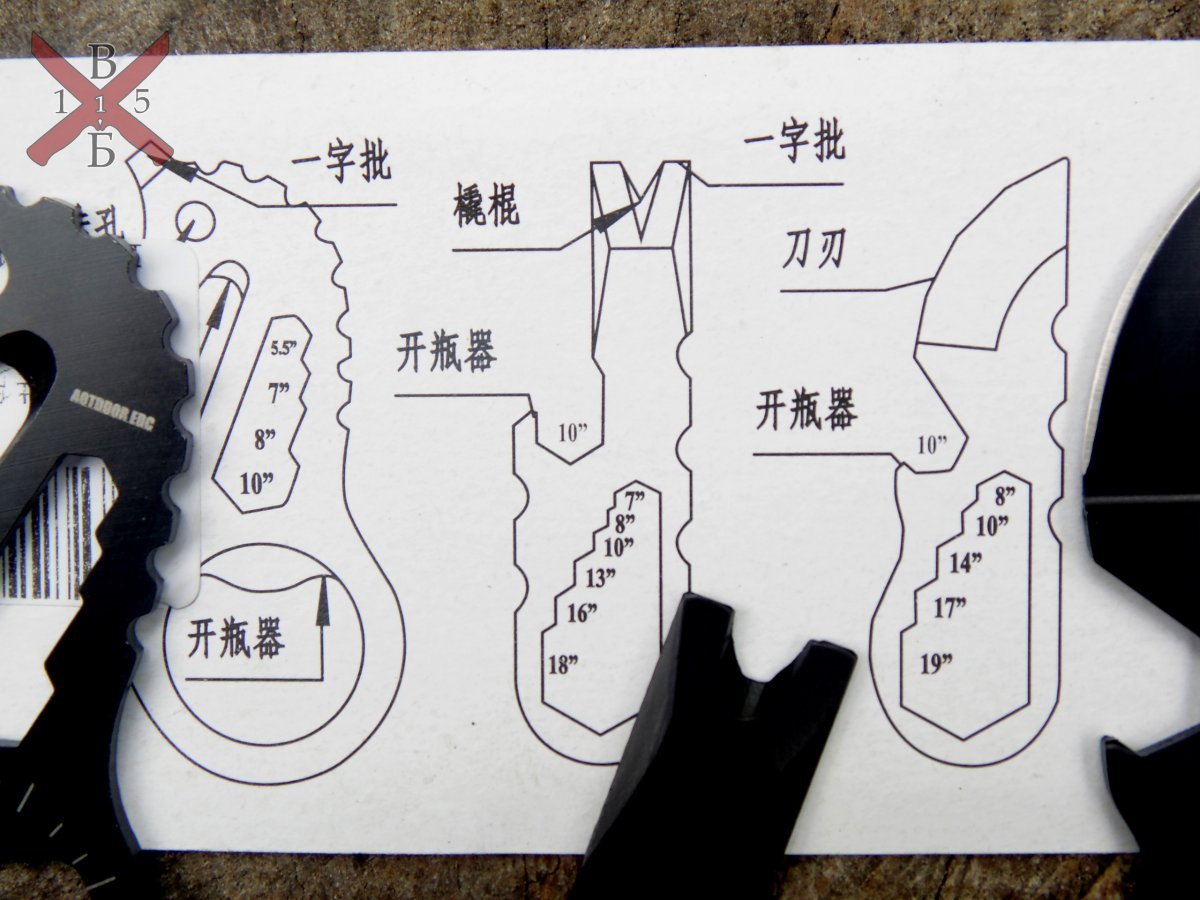 В
1 1 5
Б
一字批
孔
5.5”
7”
8”
10”
开瓶器
AOTDDOR.EDC
橇棍
一字批
开瓶器
10”
7”
8”
10”
13”
16”
18”
刀刃
开瓶器
10”
8”
10”
14”
17”
19”